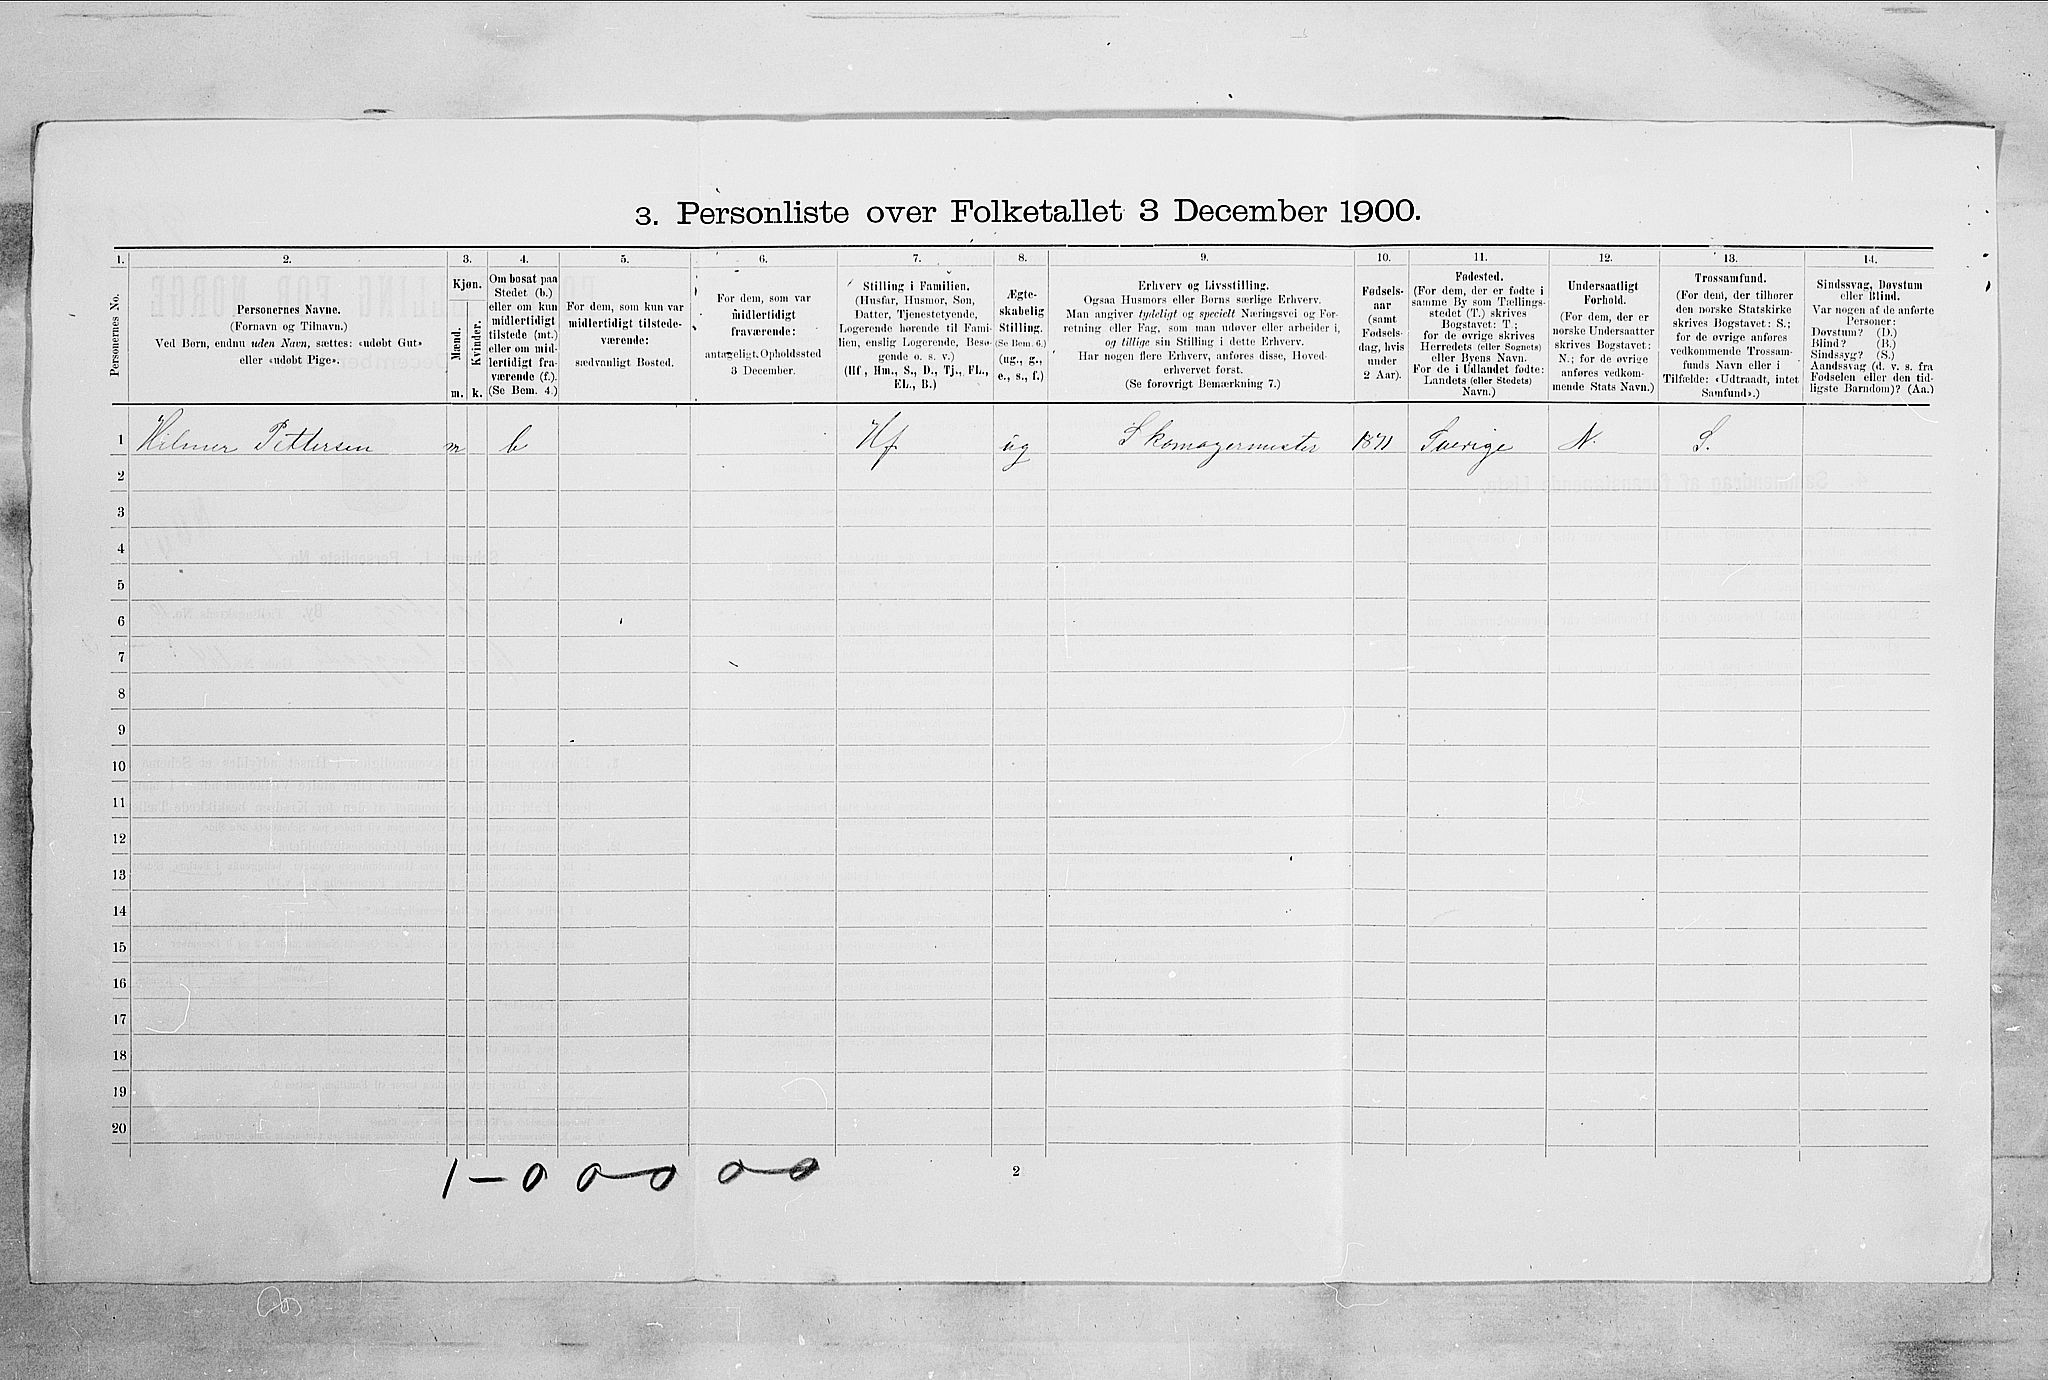 3. Personliste over Folketallet 3 December 1900.
1. 2. 3. 4. 5. 6. 7. 8. 9. 10. 11. 12. 13. 14.
Personernes No.
Personernes Navne.
(Fornavn og Tilnavn.)
Ved Børn, endnu uden Navn, sættes: «udøbt Gut»
eller «udøbt Pige».
Kjøn.
Mænd.
Kvinder.
m. k.
Om bosat paa
Stedet (b.)
eller om kun
midlertidigt
tilstede (mt.)
eller om mid-
lertidigt fra-
værende (f.).
(Se Bem. 4.)
For dem, som kun var
midlertidigt tilstede-
værende:
sædvanligt Bosted.
For dem, som var
midlertidigt
fraværende:
antageligt Opholdssted
3 December.
Stilling i Familien.
(Husfar, Husmor, Søn,
Datter, Tjenestetyende,
Logerende hørende til Fami-
lien, enslig Logerende, Besø-
gende o. s. v.)
(Hf., Hm., S., D., Tj., FL.,
EL., B.)
Ægte-
skabelig
Stilling.
(Se Bem. 6.)
(ug., g.,
e., s., f.)
Erhverv og Livsstilling.
Ogsaa Husmors eller Børns særlige Erhverv.
Man angiver tydeligt og specielt Næringsvei og For-
retning eller Fag, som man udøver eller arbeider i,
og tillige sin Stilling i dette Erhverv.
Har nogen flere Erhverv, anføres disse, Hoved-
erhvervet først.
(Se forøvrigt Bemærkning 7.)
Fødsels-
aar
(samt
Fødsels-
dag, hvis
under
2 Aar).
Fødested.
(For dem, der er fødte i
samme By som Tællings-
stedet (T.) skrives
Bogstavet: T.;
for de øvrige skrives
Herredets (eller Sognets)
eller Byens Navn.
For de i Udlandet fødte:
Landets (eller Stedets)
Navn.)
Undersaatligt
Forhold.
(For dem, der er
norske Undersaatter
skrives Bogstavet:
N.; for de øvrige
anføres vedkom-
mende Stats Navn.)
Trossamfund.
(For dem, der tilhører
den norske Statskirke
skrives Bogstavet: S.;
for de øvrige anføres
vedkommende Trossam-
funds Navn eller i
Tilfælde: «Udtraadt, intet
Samfund».)
Sindssvag, Døvstum
eller Blind.
Var nogen af de anførte
Personer:
Døvstum? (D.)
Blind? (B.)
Sindssyg? (S.)
Aandssvag (d. v. s. fra
Fødselen eller den tid-
ligste Barndom)? (Aa.)
1 Hilmer Pettersen m b Hf ug Skomagermester 1871 Sverige N. S.
2
3
4
5
6
7
8
9
10
11
12
13
14
15
16
17
18
19
20
1 - 0 0 - 0 0 - 0
2